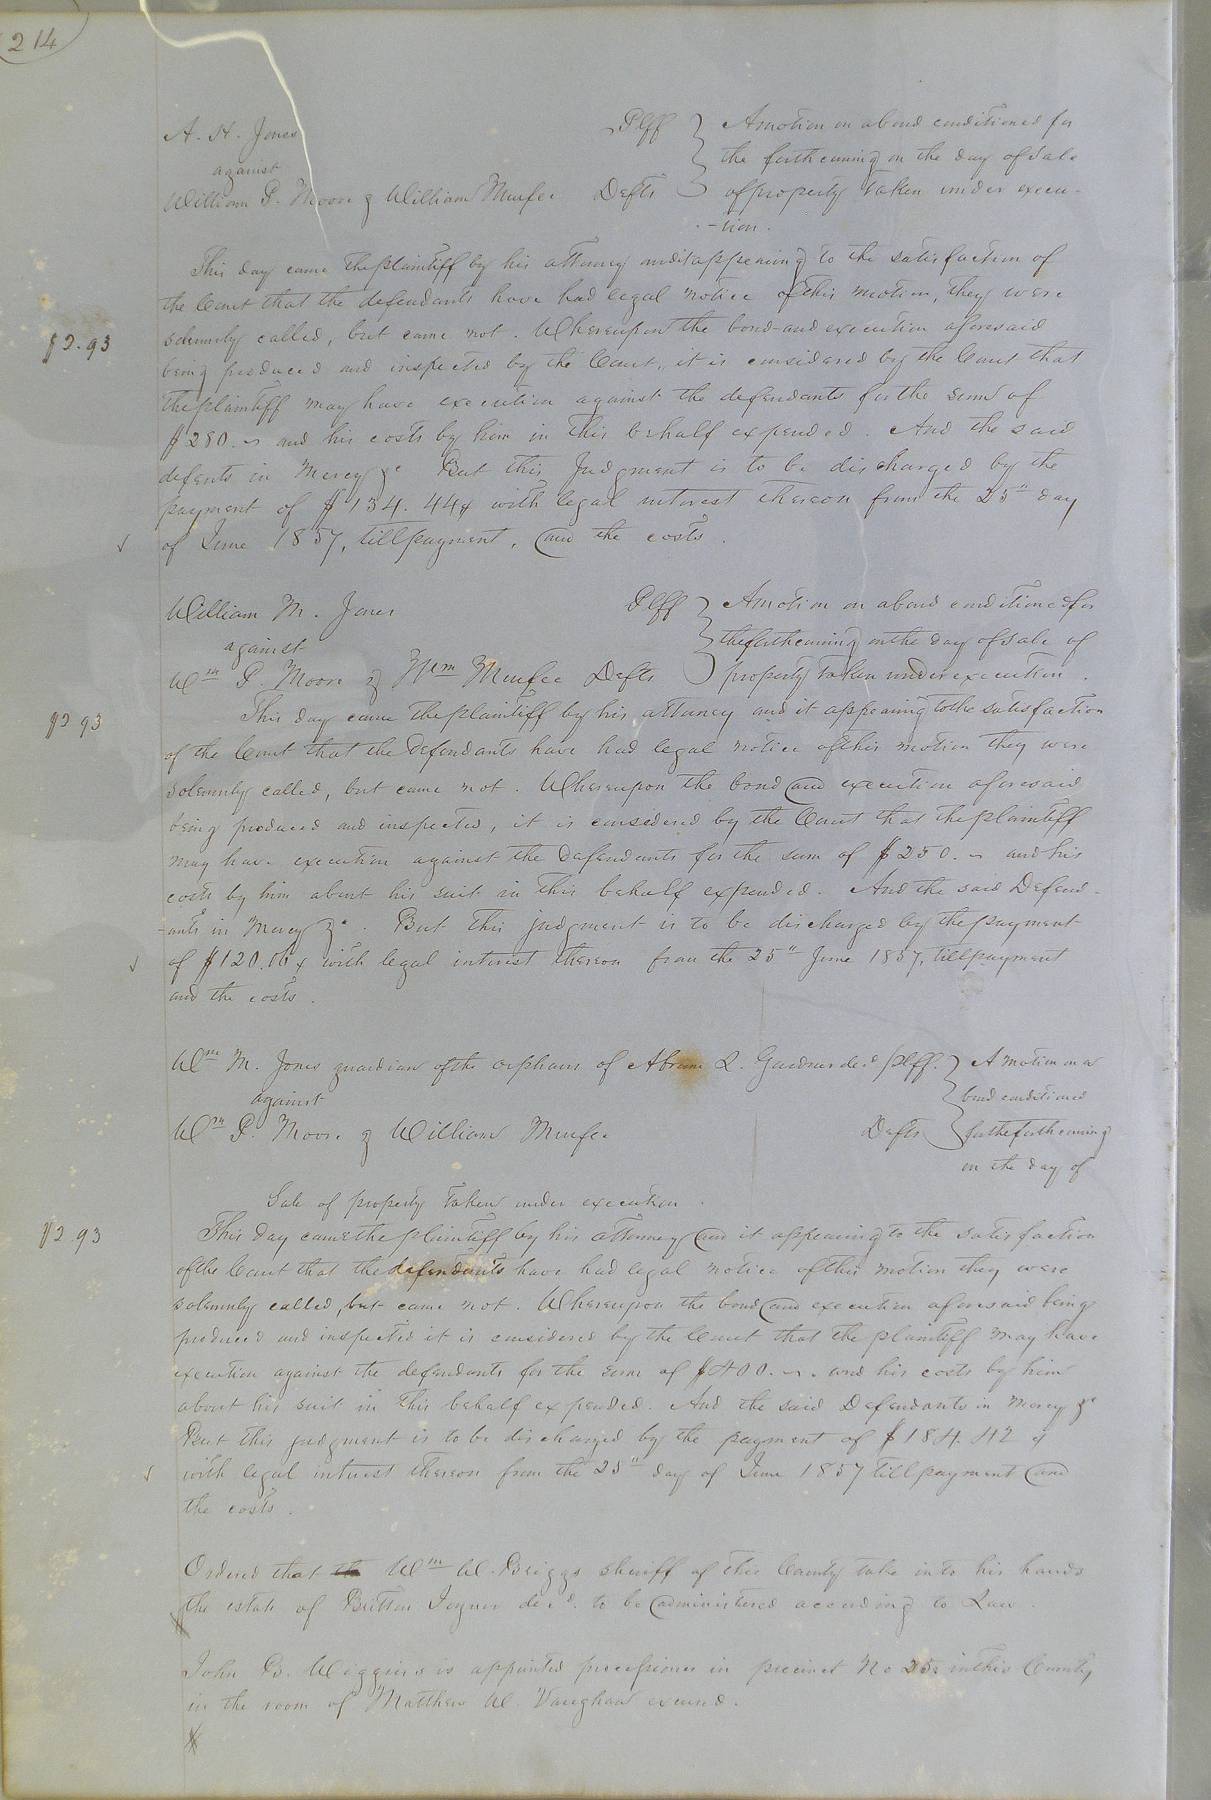 214
A. H. Jones Plff } A motion on a bond conditioned for
against the forthcoming on the day of Sale
William P. Moore & William Murfee Defts of property taken under execu-
-tion.
This day came the plaintiff by his attorney and it appearing to the satisfaction of
the Court that the defendants have had legal notice of this motion, they were
$2.93 solemnly called, but came not. Whereupon the bond and execution aforesaid
being produced and inspected by the Court, it is considered by the Court that
the plaintiff may have execution against the defendants for the sum of
$280. ~ and his costs by him in this behalf expended. And the said
defents in Mercy &c But this Judgment is to be discharged by the
payment of $134.44 with legal interest thereon from the 25" day
of June 1857, till payment, and the costs.
William M. Jones Plff } A motion on a bond conditioned for
against the forthcoming on the day of Sale of
Wm P. Moore & Wm Murfee Defts property taken under execution.
$2 93 This day came the plaintiff by his attorney and it appearing to the satisfaction
of the Court that the Defendants have had legal notice of this motion they were
solemnly called, but came not. Whereupon the bond and execution aforesaid
being produced and inspected, it is considered by the Court that the plaintiff
may have execution against the Defendants for the sum of $250. ~ and his
costs by him about his suit in this behalf expended. And the said Defend-
-ants in Mercy &c. But this judgment is to be discharged by the payment
of $120. with legal interest thereon from the 25" June 1857, till payment
and the costs.
Wm M. Jones guardian of the orphans of Abram Q. Gardner decd Plff. } A motion on a
against bond conditioned
Wm P. Moore & William Murfee Defts for the forthcoming
on the day of
Sale of property taken under execution.
$2.93 This day came the plaintiff by his attorney and it appearing to the satisfaction
of the Court that the defendants have had legal notice of this motion they were
solemnly called, but came not. Whereupon the bond and execution aforesaid being
produced and inspected it is considered by the Court that the plaintiff may have
execution against the defendants for the sum of $400. ~. and his costs by him
about his suit in this behalf expended. And the said Defendants in Mercy &c
But this judgment is to be discharged by the payment of $184.42
with legal interest thereon from the 25" day of June 1857 till payment and
the costs.
Ordered that the Wm W. Briggs sheriff of this County take into his hands
the estate of Britton Joyner decd. to be administered according to Law.
John B. Wiggins is appointed processioner in precinct No 25 in this County,
in the room of Matthew W. Vaughan excused.